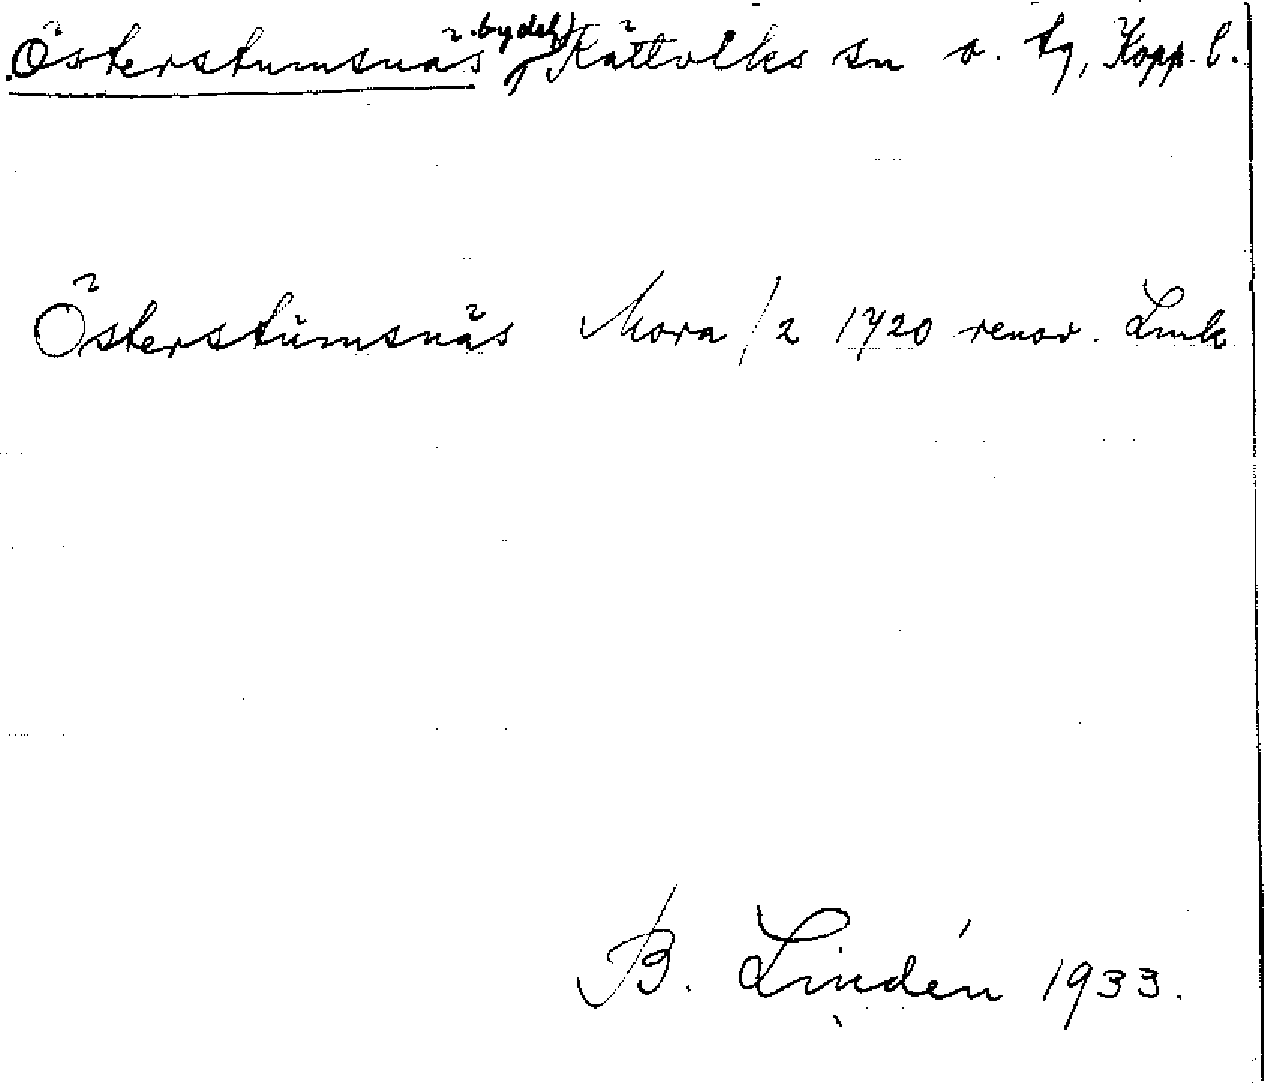 Österstumsnäs (bydel) Rättviks sn o. tg, Kopp. l.
Österstumsnäs Mora /2 1720 renov. Lmk
B. Lindén 1933.